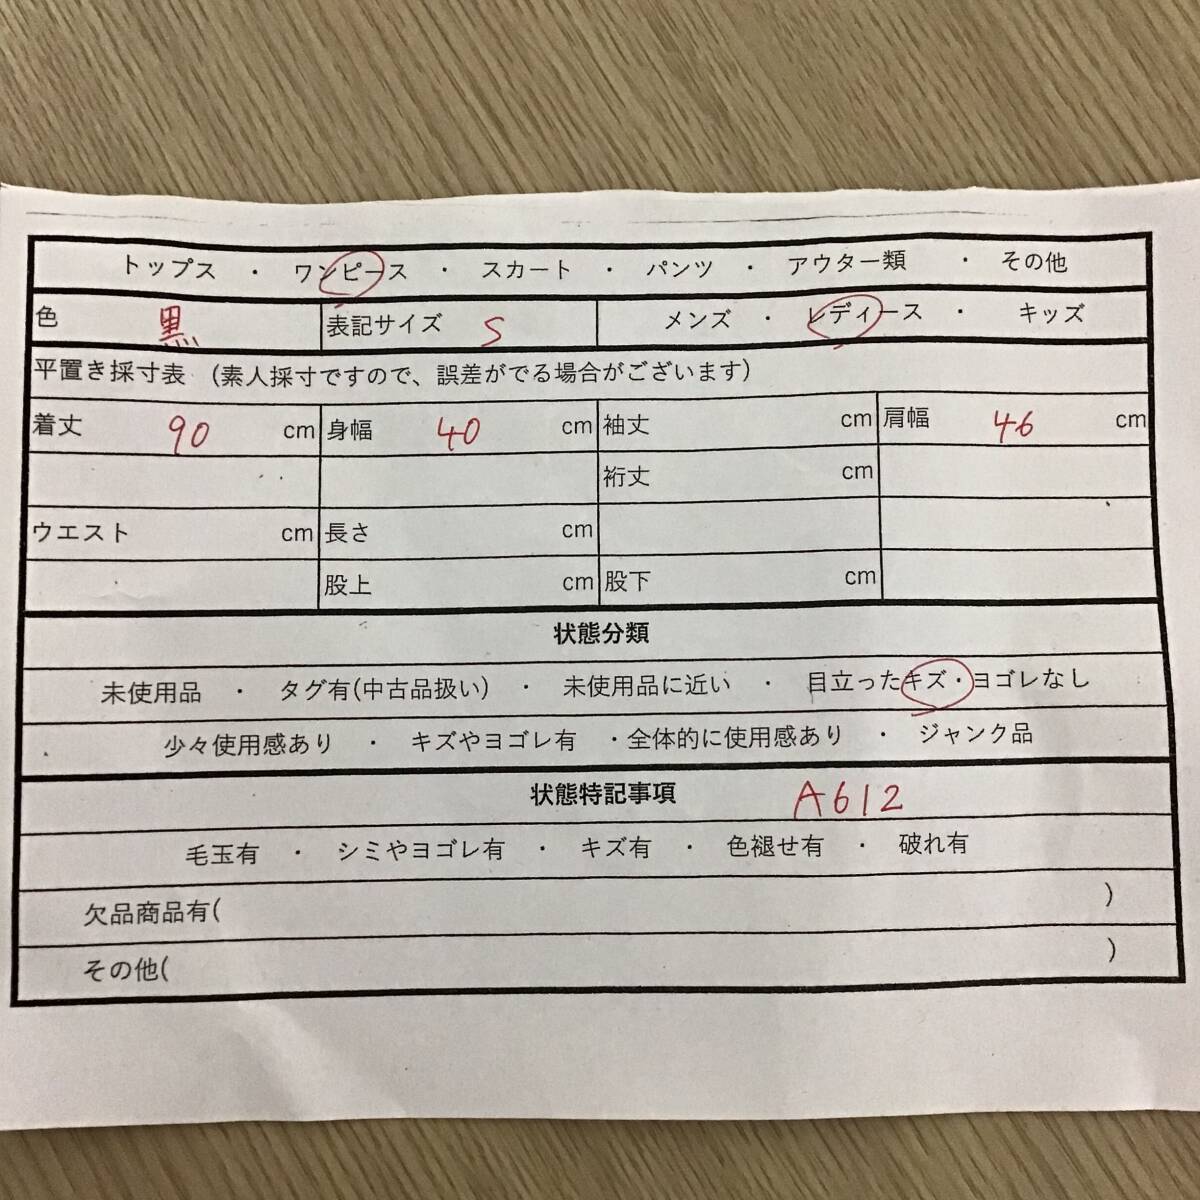 トップス ・ ワンピース ・ スカート ・ パンツ ・ アウター類 ・ その他
色 黒 表記サイズ S メンズ ・ レディース ・ キッズ
平置き採寸表 (素人採寸ですので、誤差がでる場合がございます)
着丈 90 cm 身幅 40 cm 袖丈 cm 肩幅 46 cm
裄丈 cm
ウエスト cm 長さ cm
股上 cm 股下 cm
状態分類
未使用品 ・ タグ有(中古品扱い) ・ 未使用品に近い ・ 目立ったキズ・ヨゴレなし
少々使用感あり ・ キズやヨゴレ有 ・全体的に使用感あり ・ ジャンク品
状態特記事項 A612
毛玉有 ・ シミやヨゴレ有 ・ キズ有 ・ 色褪せ有 ・ 破れ有
欠品商品有( )
その他( )